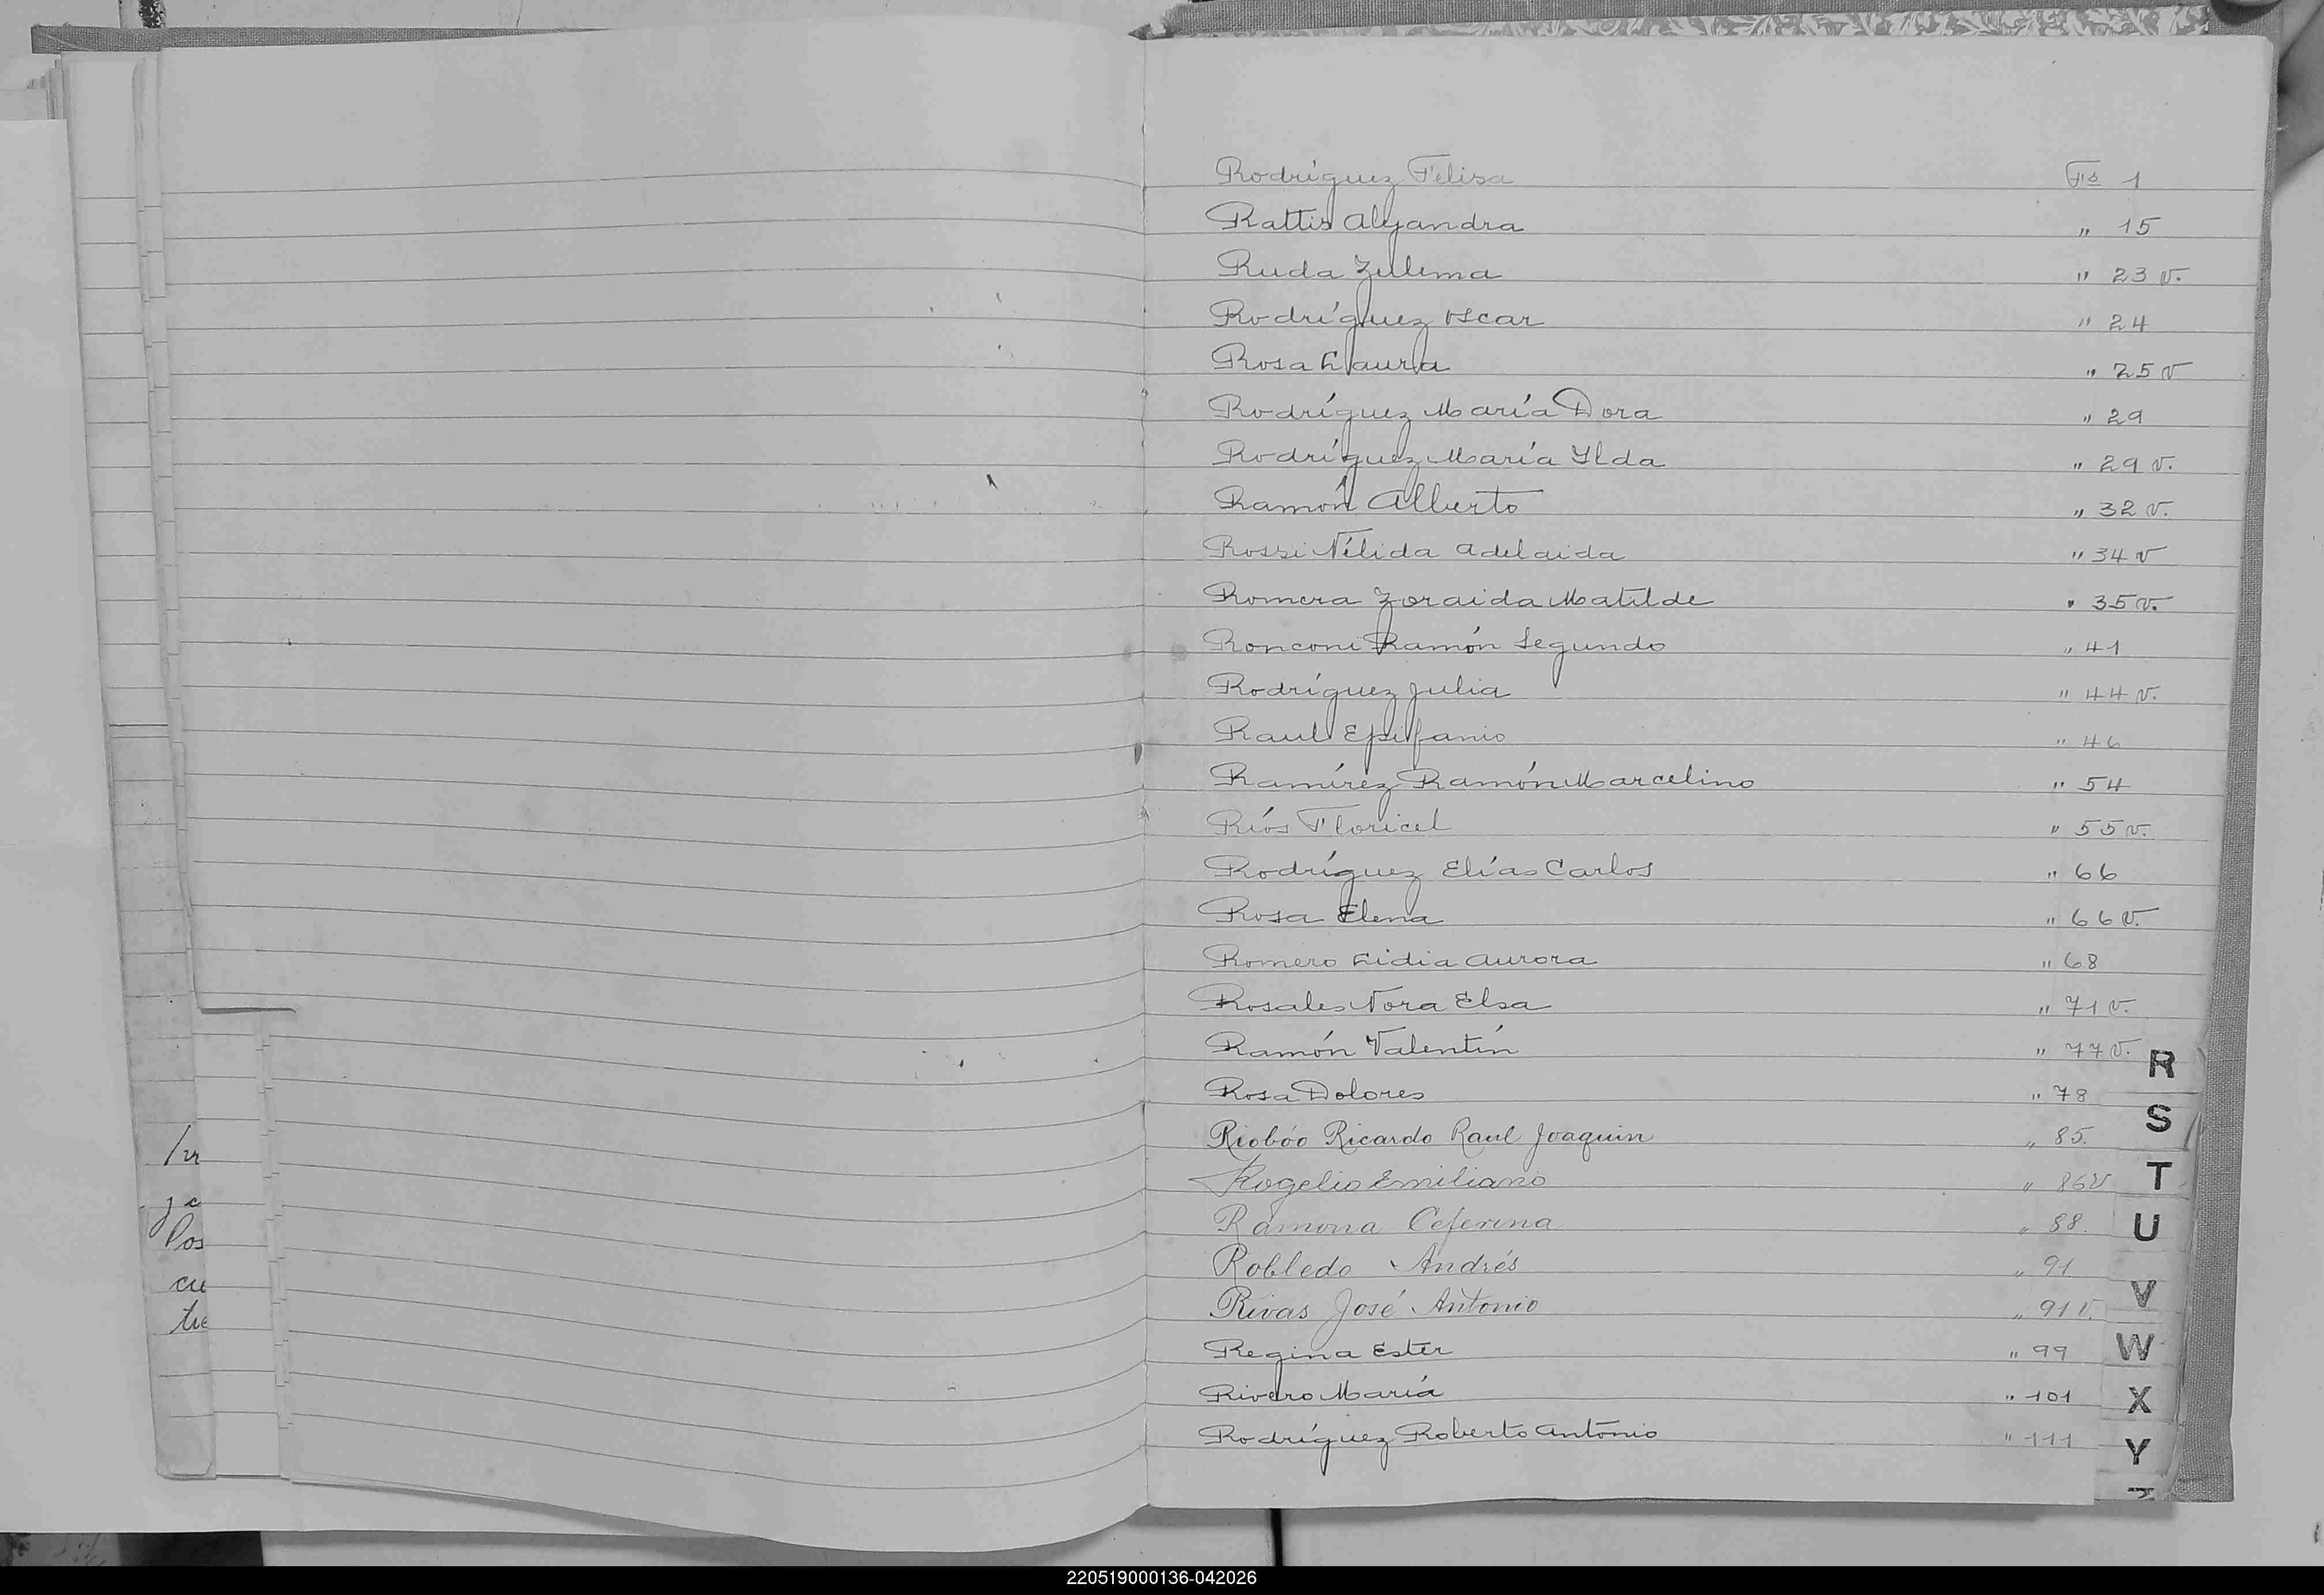 Rodríguez Felisa Fs 1
Rattis Alejandra " 15
Ruda Zulema " 23 v.
Rodríguez Oscar " 24
Rosa Laura " 25 v
Rodríguez María Dora " 29
Rodríguez María Ilda " 29 v.
Ramón Alberto " 32 v.
Rossi Nélida Adelaida " 34 v
Romera Zoraida Matilde " 35 v.
Ronconi Ramón Segundo " 41
Rodríguez Julia " 44 v.
Raul Epifanio " 46
Ramírez Ramón Marcelino " 54
Ríos Floricel " 55 v.
Rodríguez Elías Carlos " 66
Rosa Elena " 66 v.
Romero Lidia Aurora " 68
Rosales Nora Elsa " 71 v.
Ramón Valentín " 77 v.
Rosa Dolores " 78
Riobóo Ricardo Raul Joaquin " 85.
Rogelio Emiliano " 86 v
Ramona Ceferina " 88.
Robledo Andrés " 91
Rivas José Antonio " 91 v.
Regina Ester " 99
Rivero María " 101
Rodríguez Roberto Antonio " 111
R
S
T
U
V
W
X
Y
los
cu
220519000136-042026